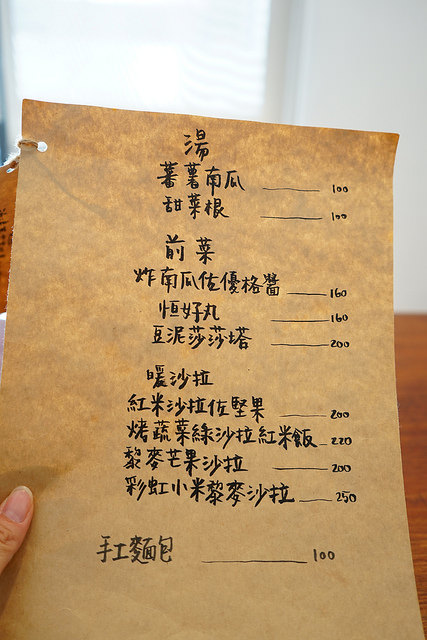 湯
蕃薯南瓜 100
甜菜根 100
前菜
炸南瓜佐優格醬 160
恒好丸 160
豆泥莎莎塔 200
暖沙拉
紅米沙拉佐堅果 200
烤蔬菜綠沙拉紅米飯 220
藜麥芒果沙拉 200
彩虹小米藜麥沙拉 250
手工麵包 100